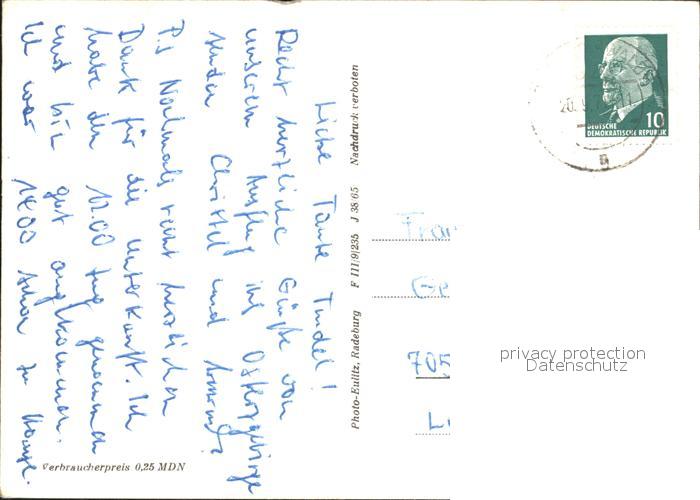 Liebe Tante Trudel!
Recht herzliche Grüße von
unserem Ausflug ins Osterzgebirge
senden Christel und
P.S Nochmals recht herzlichen
Dank für die Unterkunft. Ich
habe den 12.00 Zug genommen
und bin gut angekommen.
Ich war 14.00 schon zu Hause.
Verbraucherpreis 0,25 MDN
Photo-Eulitz, Radeburg F III/9/235 J 38 65 Nachdruck verboten
DEUTSCHE
DEMOKRATISCHE REPUBLIK
10
705
privacy protection
Datenschutz